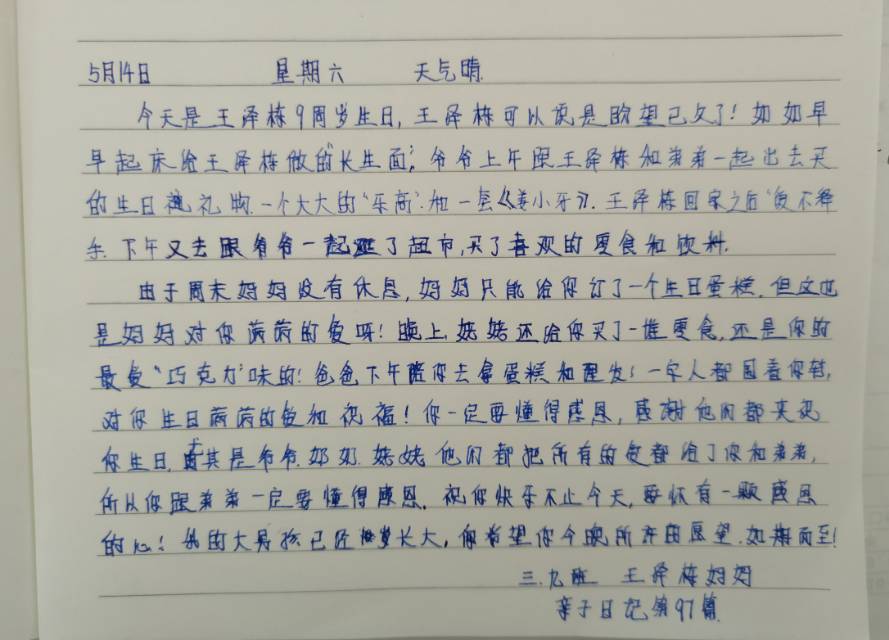 5月14日 星期六 天气晴.
今天是王泽栋9周岁生日,王泽栋可以说是盼望已久了！奶奶早
早起床给王泽栋做的"长生面";爷爷上午跟王泽栋和弟弟一起出去买
的生日礼物.一个大大的"乐高"和一套《姜小牙》.王泽栋回家之后"爱不释
手.下午又去跟爷爷一起逛了超市,买了喜欢的零食和饮料.
由于周末妈妈没有休息,妈妈只能给你订了一个生日蛋糕.但这也
是妈妈对你满满的爱呀！晚上姥姥还给你买了一堆零食,还是你的
最爱"巧克力"味的！爸爸下午陪你去拿蛋糕和理发！一家人都围着你转,
对你生日满满的爱和祝福！你一定要懂得感恩,感谢他们都来祝
你生日,尤其是爷爷.奶奶.姥姥他们都把所有的爱都给了你和弟弟,
所以你跟弟弟一定要懂得感恩.祝你快乐不止今天,要怀有一颗感恩
的心！我的大男孩已经9岁长大,希望你今晚所许的愿望.如期而至！
三.九班 王泽栋妈妈
亲子日记第97篇